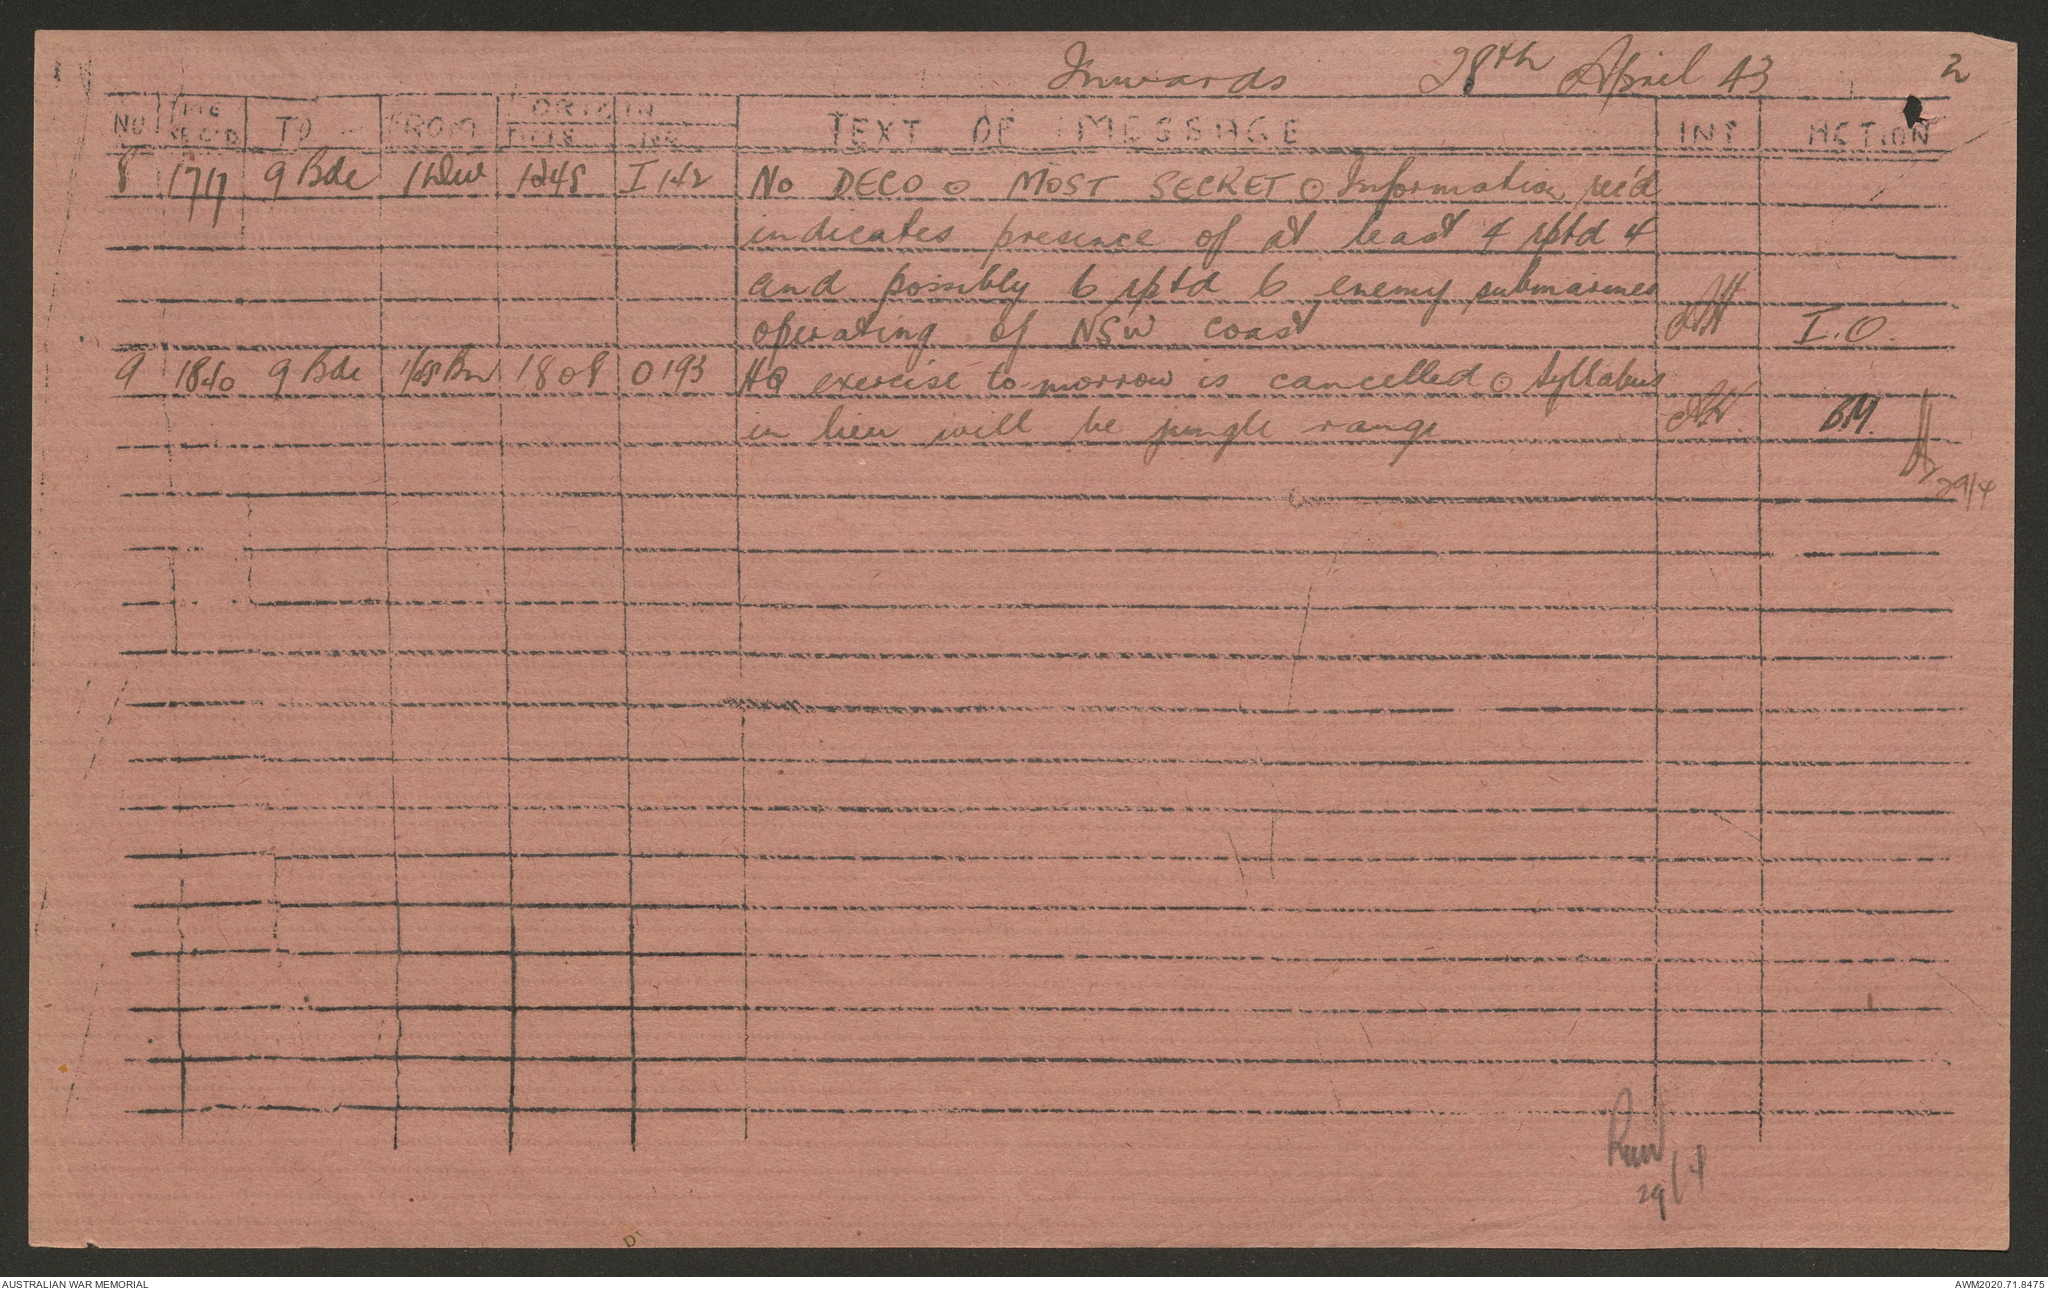 Inwards 28th April 43 2
NO TIME REC'D TO FROM ORIGIN TIME NO TEXT OF MESSAGE INT ACTION
8 1717 9 Bde 1 Div 1248 I 142 No DECO ⊙ MOST SECRET ⊙ Information rec'd
indicates presence of at least 4 rptd 4
and possibly 6 rptd 6 enemy submarines
operating of NSW coast I.O.
9 1840 9 Bde Bn 1808 O193 HQ exercise to-morrow is cancelled ⊙ Syllabus
in lieu will be jungle range BM.
29/4
29/4
AUSTRALIAN WAR MEMORIAL AWM2020.71.8475